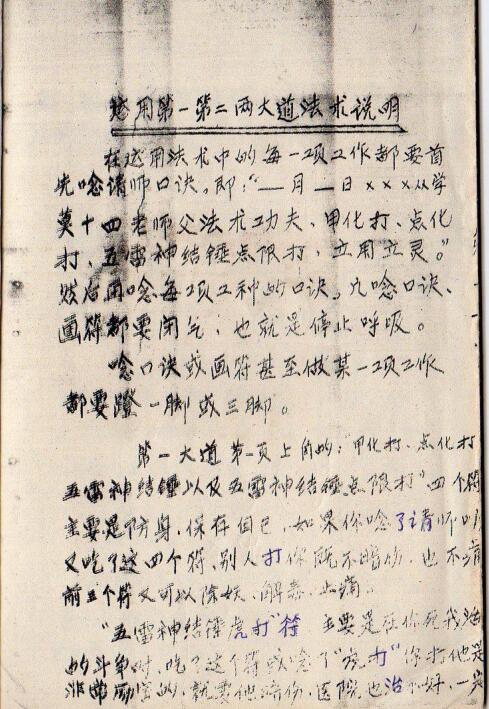 运用第一第二两大道法术说明
在运用法术中的每一项工作都要首
先唸请师口诀。即:“__月__日×××从学
莫十四老师父法术功夫、甲化打、点化
打、五雷神结锤点限打,立用立灵。”
然后再唸每项工种的口诀。凡唸口诀、
画符都要闭气,也就是停止呼吸。
唸口诀或画符甚至做某一项工作
都要蹬一脚或三脚。
第一大道第一页上角的:“甲化打、点化打
五雷神结锤以及五雷神结锤点限打”四个符
主要是防身,保存自己,如果你唸了请师
又吃了这四个符,别人打你既不暗伤,也不痛
前三个符又可以除妖、解毒、止痛。
“五雷神结锤虎打”符 主要是在你死我活
的斗争时,吃了这个符或唸了“虎打”你打他是
非常厉害的,就要他暗伤,医院也治不好,一